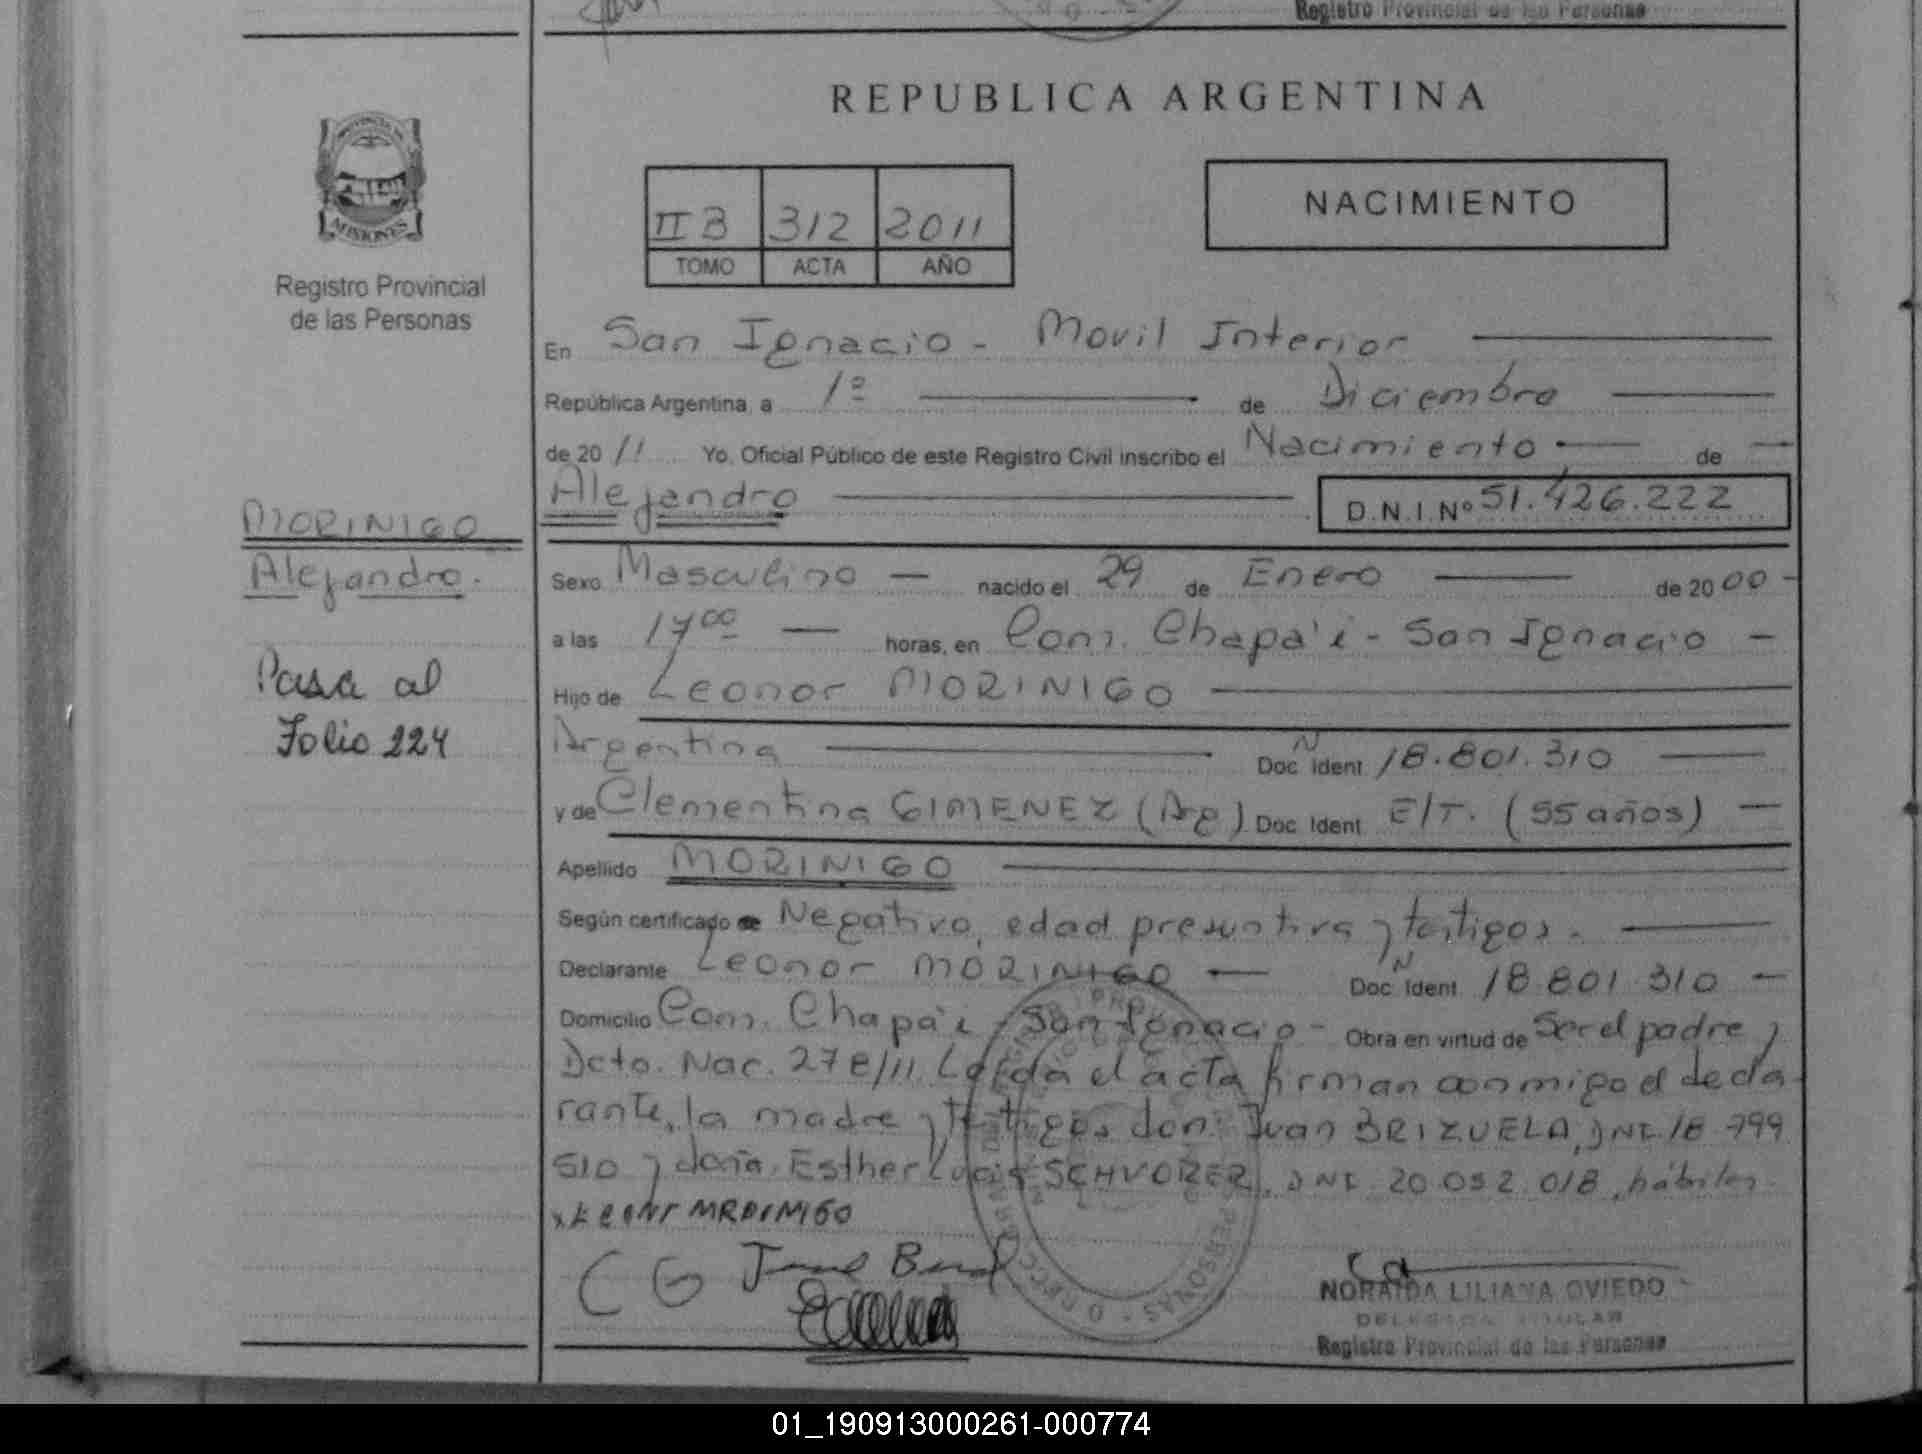 Registro Provincial de las Personas
REPUBLICA ARGENTINA
PROVINCIA DE
MISIONES
Registro Provincial
de las Personas
II B 312 2011
TOMO ACTA AÑO
NACIMIENTO
En San Ignacio - Movil Interior
República Argentina, a 1º de Diciembre
de 2011 Yo, Oficial Público de este Registro Civil inscribo el Nacimiento de
Alejandro D.N.I. Nº 51.426.222
MORINIGO
Alejandro.
Pasa al
Folio 224
Sexo Masculino nacido el 29 de Enero de 2000
a las 17 00 horas, en Com. Chapa'i - San Ignacio
Hijo de Leonor MORINIGO
Argentina Doc. N Ident 18.801.310
y de Clementina GIMENEZ (Arg) Doc. Ident E/T. (55 años)
Apellido MORINIGO
Según certificado de Negativo, edad presuntiva y testigos.
Declarante Leonor MORINIGO Doc. N Ident. 18.801.310
Domicilio Com. Chapa'i - San Ignacio - Obra en virtud de Ser el padre y
Dcto. Nac. 278/11. Leída el acta firman conmigo el decla
rante, la madre y testigos don: Juan BRIZUELA, DNI. 18.799
510 y doña. Esther Lucia SCHVORER, DNI. 20.052.018, hábiles.
MRDIMIGO
C G
NORAIDA LILIANA OVIEDO
DELEGADA TITULAR
Registro Provincial de las Personas
01_190913000261-000774